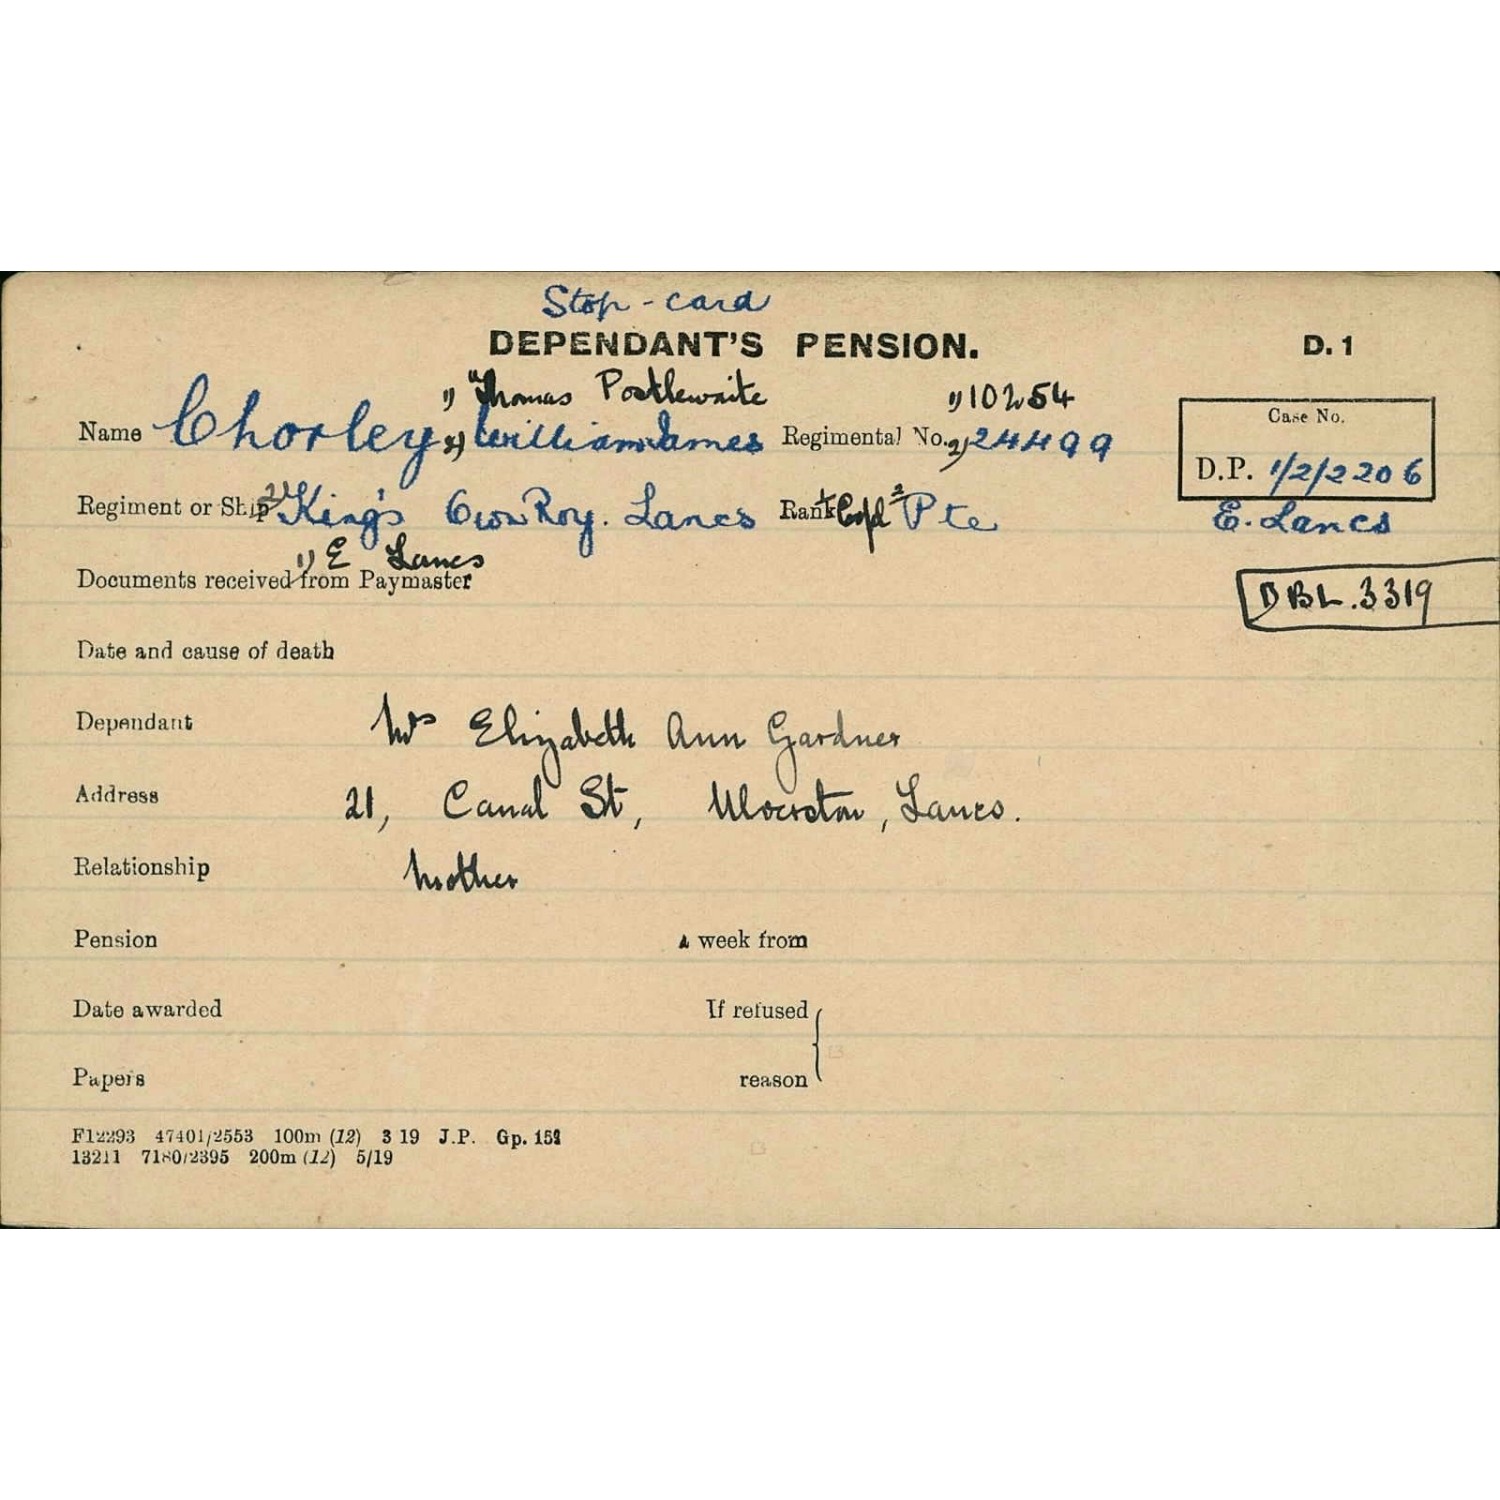 Stop-card
DEPENDANT'S PENSION. D. 1
1) Thomas Postlewaite 1) 10254
Name Chorley 2) William James Regimental No. 2) 24499
Case No.
D.P. 1/2/2206
Regiment or Ship 2) King's Own Roy. Lancs Rank 1 Corpl 2 Pte
E. Lancs
1) E Lancs
Documents received from Paymaster
DBL. 3319
Date and cause of death
Dependant Mrs Elizabeth Ann Gardner
Address 21, Canal St, Ulverston, Lancs.
Relationship Mother
Pension a week from
Date awarded If refused
Papers reason
F12293 47401/2553 100m (12) 3 19 J.P. Gp. 152
13211 7180/2395 200m (12) 5/19